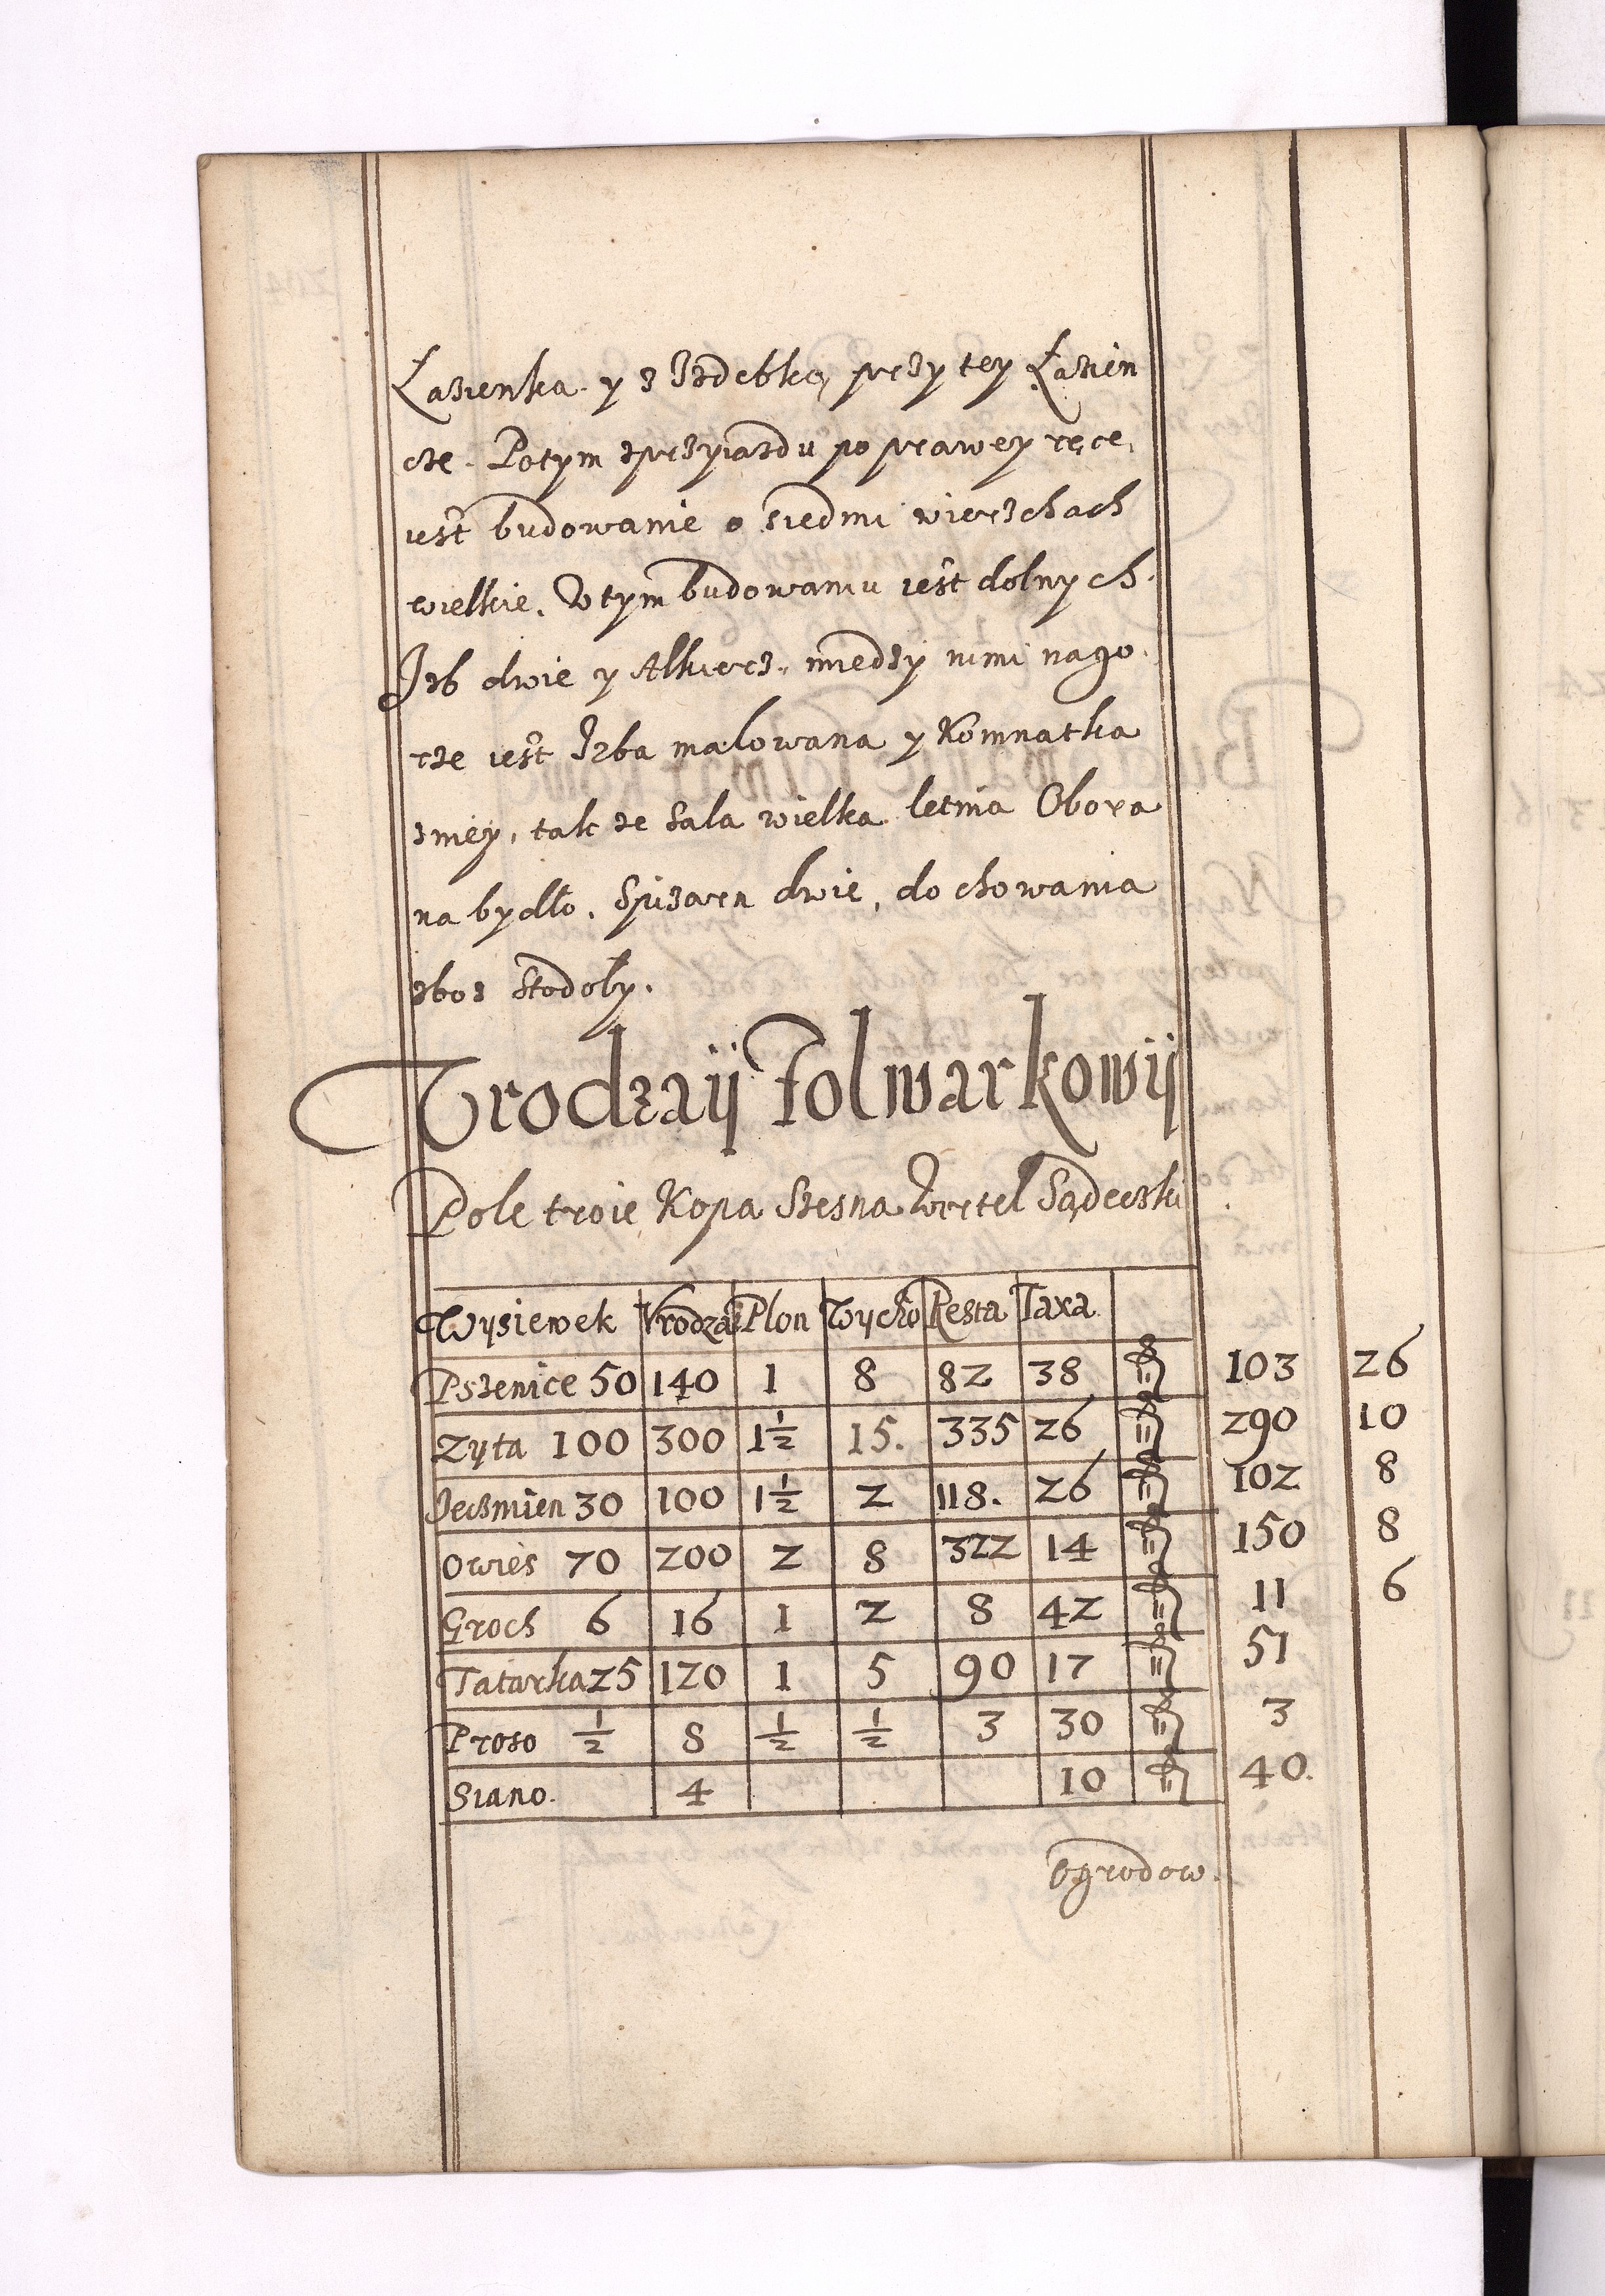 Łazienka y z Izdebką przy tey Łazien
cze. Potym zprzyiazdu po prawey ręce,
iest budowanie o siedmi wierzchach
wielkie. W tym budowaniu iest dolnych
Izb dwie y Alkierz, miedzy nimi na go
rze iest Izba malowana y Komnatka
zniey, tak ze Sala wielka letnia Obora
na bydło. Spizarn dwie, do chowania
zboz Stodoły.
Vrodzaÿ Folwarkowÿ
Pole troie Kopa Szesna Wiertel Sądeczki
Wysiewek Vrodzai Plon Wycho Resta Taxa
Pszenice 50 140 1 8 82 38 103 26
Zyta 100 300 1½ 15. 335 26 290 10
Jeczmien 30 100 1½ 2 118. 26 102 8
Owies 70 200 2 8 322 14 150 8
Groch 6 16 1 2 8 42 11 6
Tatarka 25 120 1 5 90 17 51
Proso ½ 8 ½ ½ 3 30 3
Siano. 4 10 40.
Ogrodow.